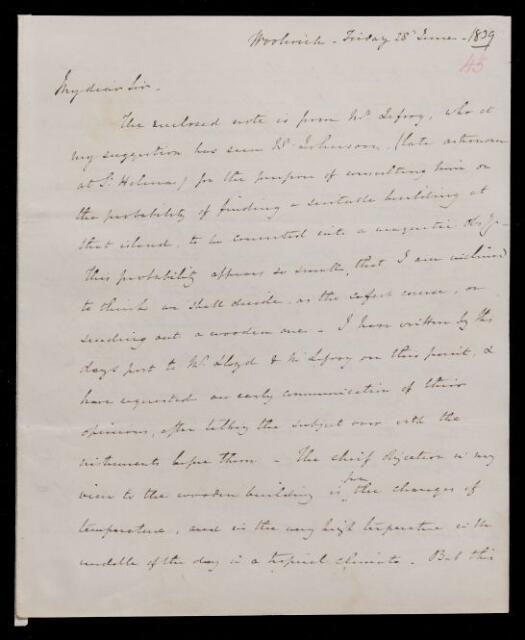 Woolwich - Friday 28 June - 1839
45
My dear Sir -
The enclosed note is from Mr Lefroy, who at
my suggestion has seen Mr Johnson, (late astronomer
at St Helena) for the purpose of consulting him on
the probability of finding a suitable building at
that island, to be converted into a magnetic Obsy -
This probability appears so small, that I am inclined
to think we shall decide, as the safest course, on
sending out a wooden one - I have written by this
days post to Mr Lloyd & Mr Lefroy on this point, &
have requested an early communication of their
opinions, after talking the subject over with the
instruments before them - The chief objection in my
view to the wooden building is the changes of
temperature, and in the very high temperature in the
middle of the day in a tropical climate. But this